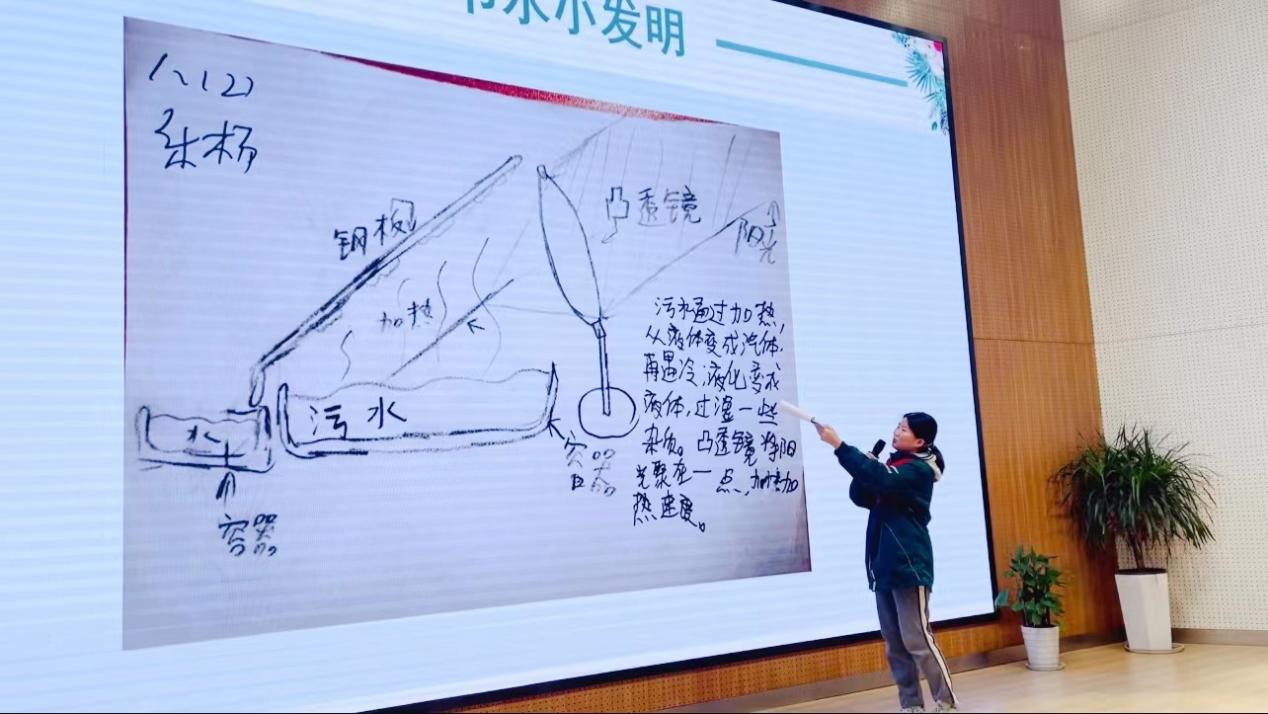 节水小发明
八(2)
朱杨
钢板
凸透镜
阳光
加热
污水
水
容器
容器
污水通过加热，
从液体变成汽体，
再遇冷液化变成
液体，过滤一些
杂质。凸透镜将阳
光聚在一点，加快加
热速度。